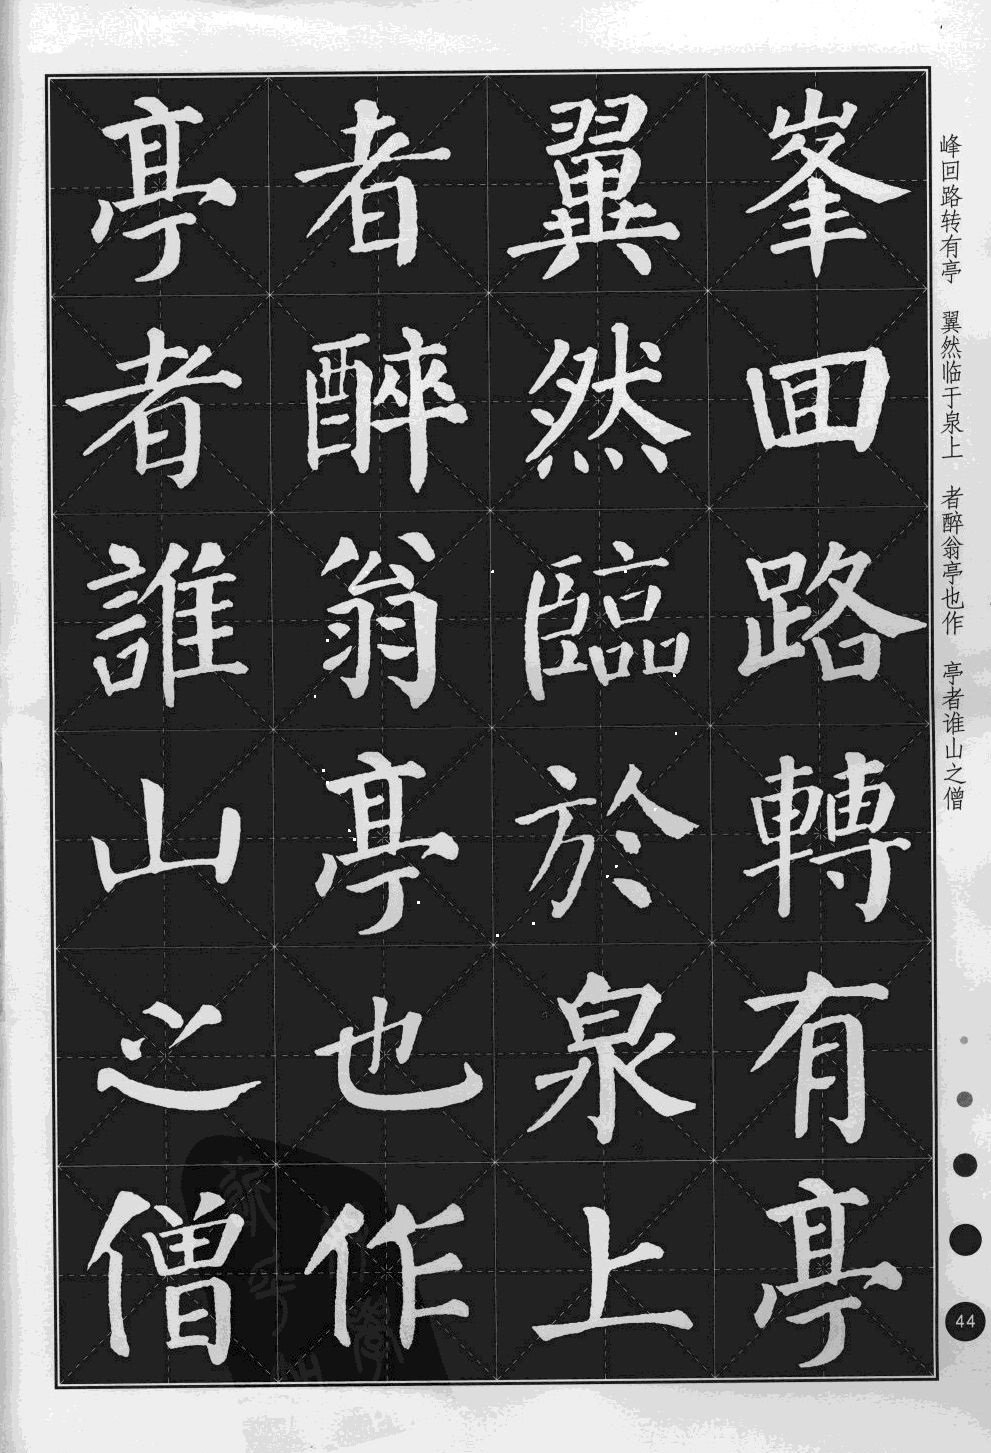 峯回路轉有亭
翼然臨於泉上
者醉翁亭也作
亭者誰山之僧
峰回路转有亭 翼然临于泉上 者醉翁亭也作 亭者谁山之僧
44